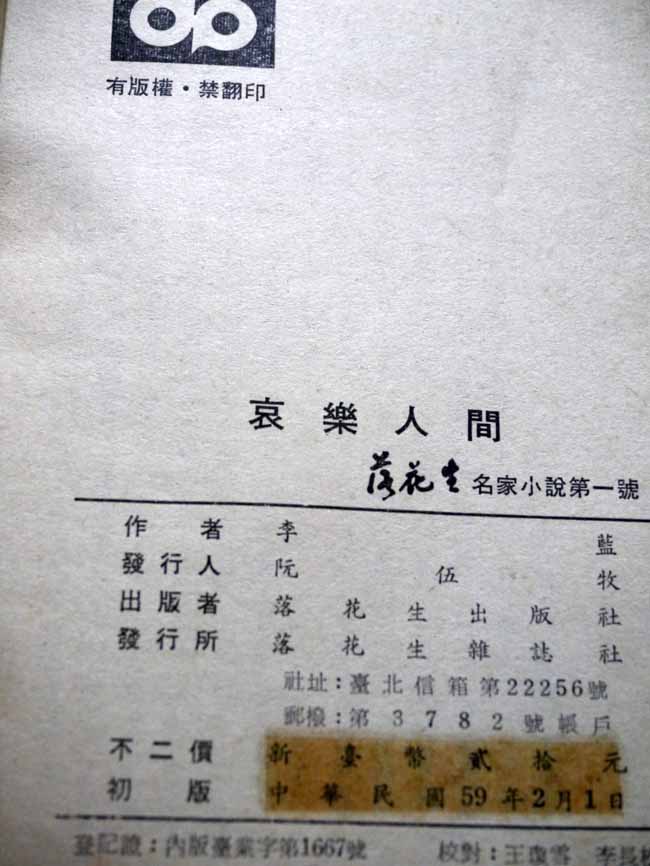 有版權・禁翻印
哀樂人間
落花生 名家小說第一號
作者 李藍
發行人 阮伍牧
出版者 落花生出版社
發行所 落花生雜誌社
社址：臺北信箱第22256號
郵撥：第3782號帳戶
不二價 新臺幣貳拾元
初版 中華民國59年2月1日
登記證：內版臺業字第1667號 校對：王